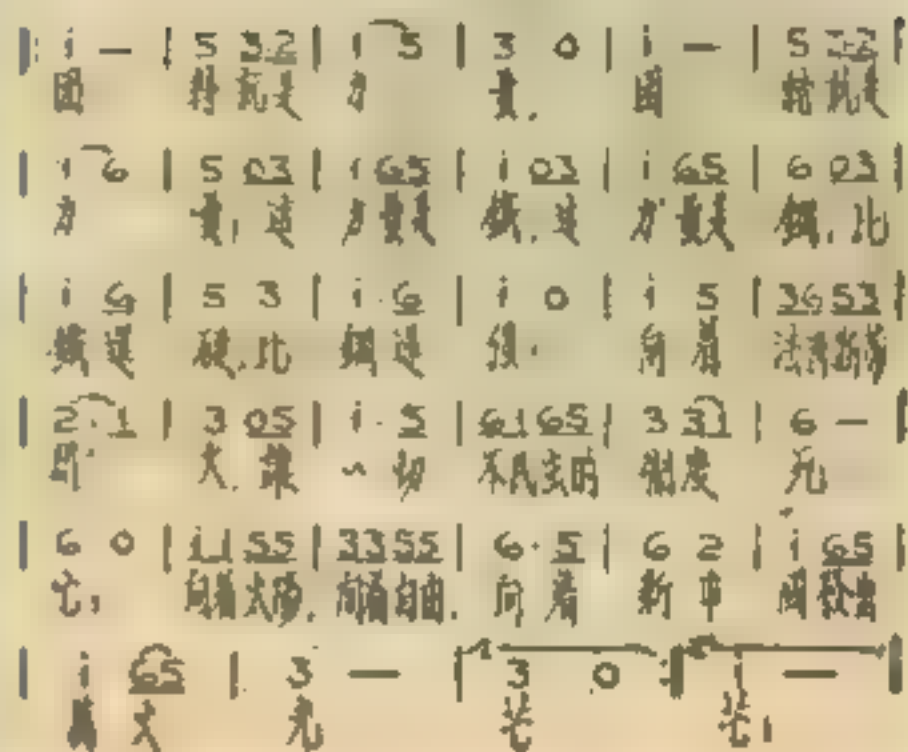 |: i — | 5 3 2 | i 5 | 3 0 | i — | 5 3 2 |
團 結就是 力 量. 團 結就是
| i 6 | 5 03 | i 65 | i 03 | i 65 | 6 03 |
力 量, 這 力量是 鐵, 這 力量是 鋼, 比
| i 6 | 5 3 | i · 6 | i 0 | i 5 | 36 53 |
鐵還 硬, 比 鋼還 強. 向着 法西斯蒂
| 2 · 1 | 3 05 | i · 5 | 61 65 | 3 31 | 6 — |
開 火, 讓 一切 不民主的 制度 死
| 6 0 | i i 55 | 33 55 | 6 · 5 | 6 2 | i 65 |
亡, 向着太陽, 向着自由, 向着 新中 國發出
| i 65 | 3 — | 3 0 :| i — |
萬丈 光 芒 芒,